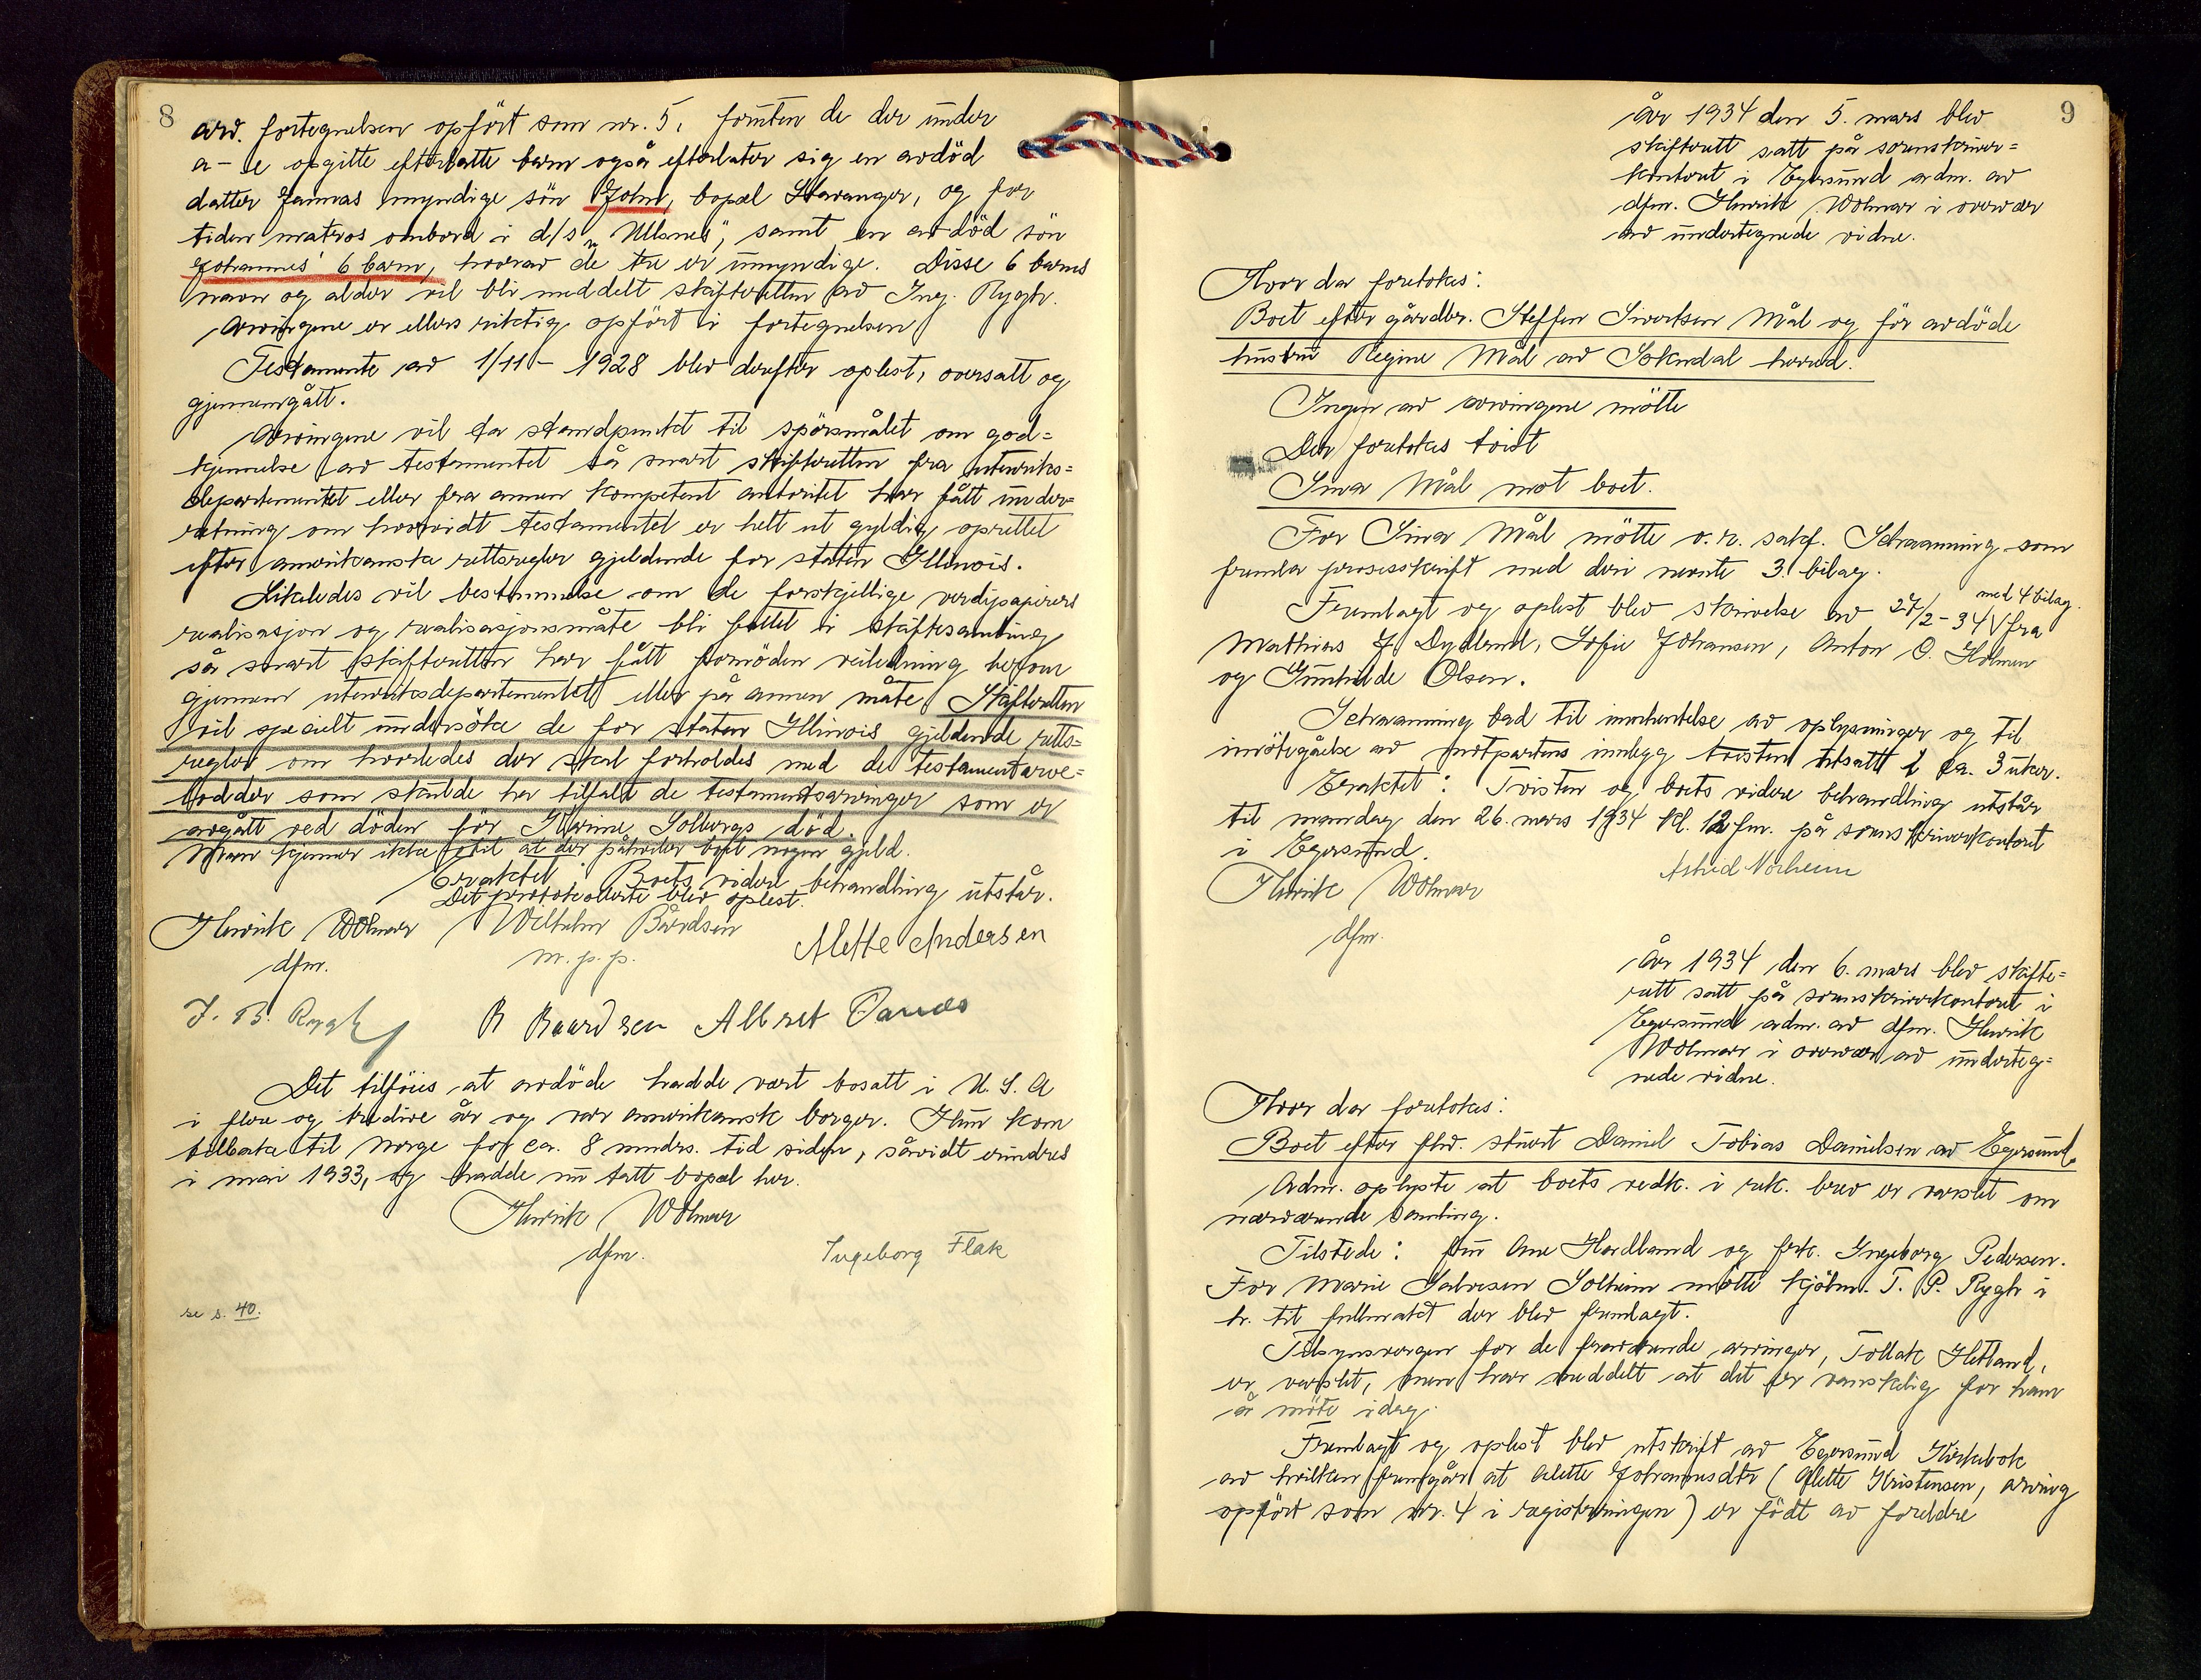 8
arv. fortegnelsen opført som nr. 5, foruten de der under
a - e opgitte efterlatte barn også efterlater sig en avdöd
datter Jannas myndige sön John, bopæl Stavanger, og for
tiden matros ombord i d/s „Ullsnes", samt en avdöd sön
Johannes' 6 barn, hvorav de tre er umyndige. Disse 6 barns
navn og alder vil bli meddelt skifteretten av Ing. Rygh.
Arvingene er ellers riktig opfört i fortegnelsen
Testamente av 1/11 - 1928 blev derefter oplest, oversatt og
gjennemgått.
Arvingene vil ta standpunkt til spörsmålet om god=
kjennelse av testamentet så snart skifteretten fra utenriks=
departementet eller fra annen kompetent autoritet har fått under=
retning om hvorvidt testamentet er helt ut gyldig oprettet
efter amerikanske rettsregler gjeldende for staten Illinois.
Likeledes vil bestemmelse om de forskjellige verdipapirers
realisasjon og realisasjonsmåte bli fattet i skiftesamling
så snart skifteretten har fått fornöden veiledning herom
gjennem utenriksdepartementet eller på annen måte. Skifteretten
vil specielt undersöke de for staten Illinois gjeldende retts=
regler om hvorledes der skal forholdes med de testamentarve=
lodder som skulde ha tilfalt de testamentsarvinger som er
avgått ved döden för Karine Solbergs död.
Man kjenner ikke til at der påhviler boet nogen gjeld.
Eraktet: Boets videre behandling utstår.
Det protokollerte blev oplest.
Henrik Wolmar Wilhelm Bårdsen Alette Andersen
dfm. m. p. p.
J. B. Rygh B Baardsen Albret
Det tilföies at avdöde hadde vært bosatt i U. S. A
i flere og tredive år og var amerikansk borger. Hun kom
tilbake til Norge for ca. 8 mndrs. tid siden, såvidt erindres
i mai 1933, og hadde nu tatt bopæl her.
Henrik Wolmar
dfm. Ingeborg Flak
se s. 40.
9
År 1934 den 5. mars blev
skifterett satt på sorenskriver=
kontoret i Egersund adm. av
dfm. Henrik Wolmar i overvær
av undertegnede vidne.
Hvor da foretokes:
Boet efter gårdbr. Steffen Sivertsen Mål og för avdöde
hustru Regine Mål av Sokndal herred.
Ingen av arvingene mötte
Der foretokes tvist
Sina Mål mot boet.
For Sina Mål mötte o. r. sakf. Schwanning som
fremla prosesskrift med deri nevnte 3 bilag.
med 4 bilag.
Fremlagt og oplest blev skrivelse av 27/2 - 34 V fra
Mathias J. Dydland, Sofie Johansen, Anton O. Holmen
og Gunhilde Olsen.
Schwanning bad til innhentelse av oplysninger og til
imötegåelse av motpartens innlegg tvisten utsatt i ca. 3 uker.
Eraktet: Tvisten og boets videre behandling utstår
til mandag den 26. mars 1934 kl. 12 fm. på sorenskriverkontoret
i Egersund.
Henrik Wolmar Astrid Norheim
dfm.
År 1934 den 6. mars blev skifte=
rett satt på sorenskriverkontoret i
Egersund adm. av dfm. Henrik
Wolmar i overvær av underteg=
nede vidne.
Hvor da foretokes:
Boet efter fhv. stuert Daniel Tobias Danielsen av Egersund.
Adm. oplyste at boets vedk. i rek. brev er varslet om
nærværende samling.
Tilstede: fru Ane Hardland og frk. Ingeborg Pedersen.
For Marie Salvesen Solheim mötte kjöbm. T. P. Rygh i
h. til fullmakt der blev fremlagt.
Tilsynsvergen for de fraværende arvinger, Tollak Hetland,
er varslet, men har meddelt at det er vanskelig for ham
å möte idag.
Fremlagt og oplest blev utskrift av Egersund Kirkebok
av hvilken fremgår at Alette Johannesdtr (Alette Kristensen, arving
opfört som nr. 4 i registreringen) er födt av foreldre